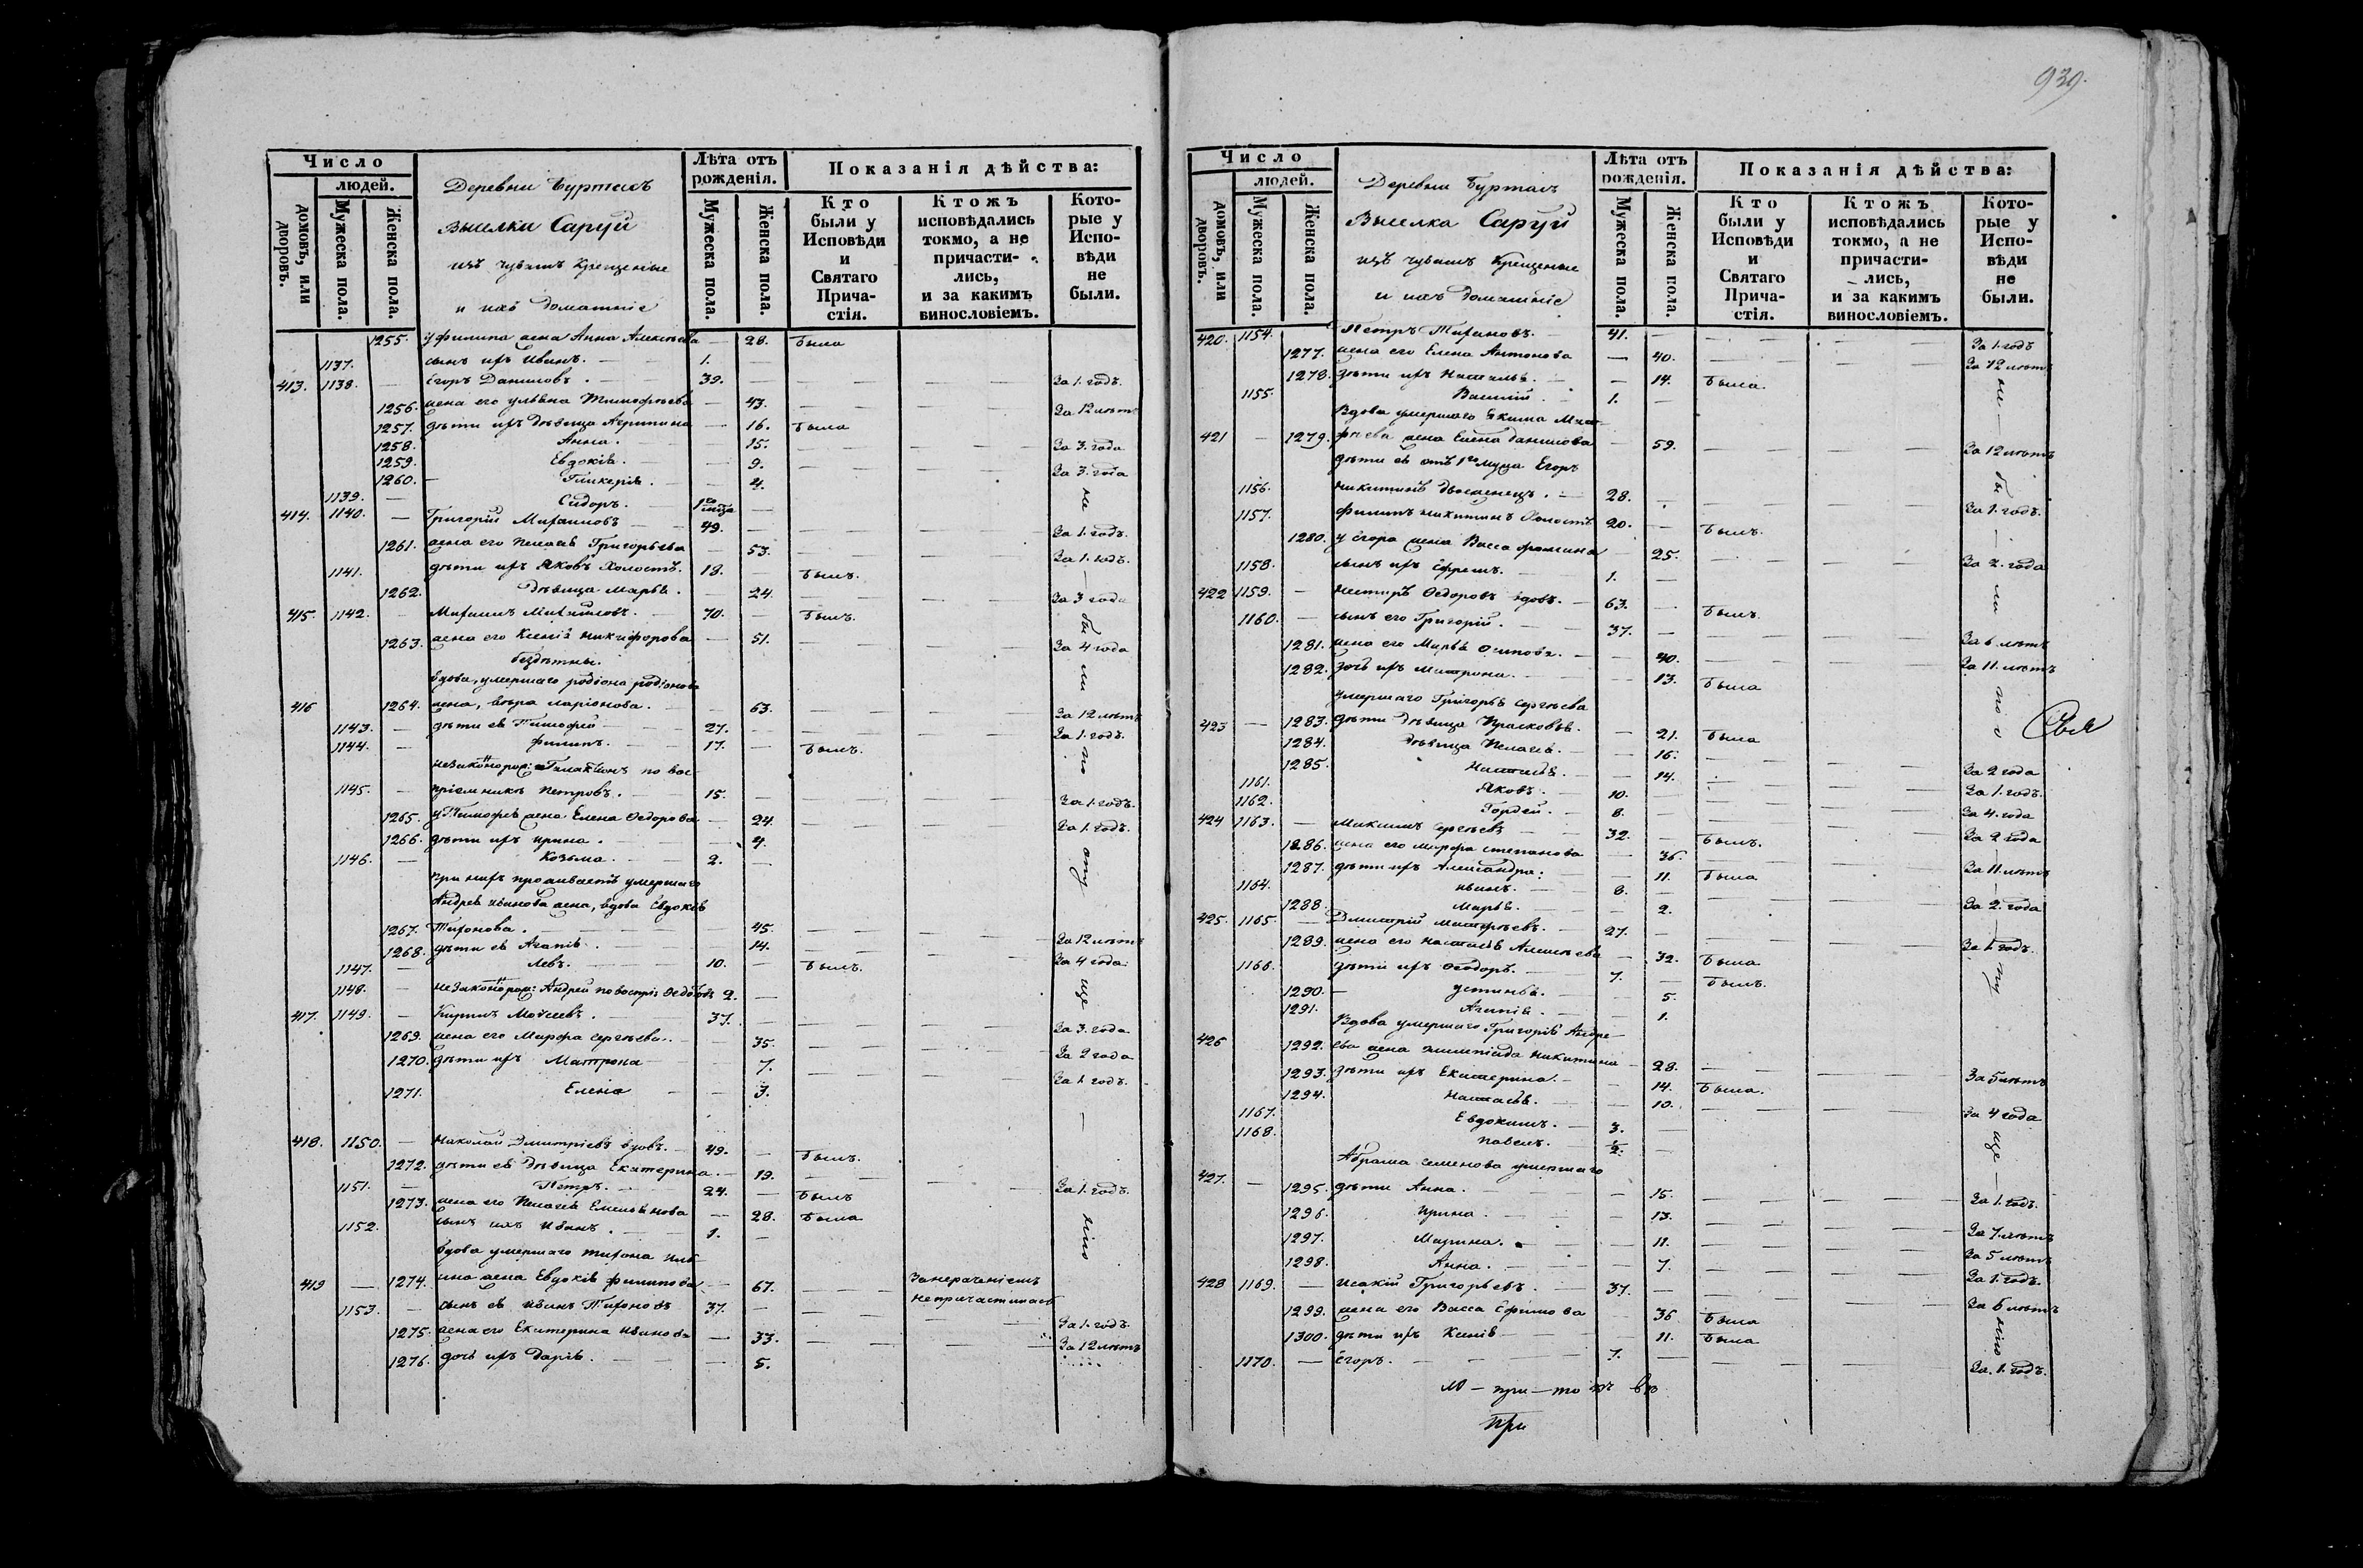 939.
Число
людей.
домовъ, или дворовъ.
Мужеска пола.
Женска пола.
Деревни Буртасъ
выселки Саруй
изъ чувашъ крещеные
и ихъ домашніе
Лѣта отъ рожденія.
Мужеска пола.
Женска пола.
Показанія дѣйства:
Кто были у Исповѣди и Святаго Причастія.
Ктожъ исповѣдались токмо, а не причастились, и за какимъ винословіемъ.
Которые у Исповѣди не были.
1255. у филипа жена Анна Алексѣева — 28. Была
1137. сынъ ихъ Иванъ. 1.
413. 1138. — Егоръ Даниловъ. 39. — За 1. годъ.
1256. жена его ульяна Тимофѣева — 43. За 12 лѣтъ
1257. дѣти ихъ дѣвица Агрипина — 16. Была
1258. Анна. 15. За 3. года
1259. Евдокія. — 9. За 3. года
1260. — Гликерія. — 4.
1139. — Сидоръ.
414. 1140. — Григорій Михаиловъ — 49. За 1. годъ.
1261. жена его Пелагея Григорьева — 53. За 1. годъ.
1141. дѣти ихъ Яковъ холостъ. 18. — Былъ.
1262. дѣвица марья. — 24. За 3 года
415. 1142. — Михаилъ Михайловъ. 70. — Былъ.
1263. жена его Ксенія никифорова — 51. За 4 года
бездѣтны.
вдова, умершаго родіона родіонова
416 1264. жена, вѣра ларіонова. 63. За 12 лѣтъ
1143. — дѣти ея Тимофей — 27. За 1. годъ.
1144. — филипъ. 17. — Былъ.
незаконорож: Галактіонъ по вос-
1145. — пріемникѣ петровъ. 15. За 1. годъ.
1265. у Тимофея жена Елена Ѳедорова — 24. За 1. годъ.
1266. дѣти ихъ ирина. — 4.
1146. — Козьма. 2. —
при нихъ проживаетъ умершаго
Андрея иванова жена, вдова Евдокія
1267. Тихонова. 45. За 12 лѣтъ
1268. дѣти ея Агапія. 14. За 4 года.
1147. — Левъ. 10. — Былъ.
1148. — незаконорож: Андрей по воспріе Ѳедоровъ 2. —
417. 1149. — Кирилъ Моисеевъ. 37. За 3. года
1269. жена его Марфа сергѣева. 35. За 2 года
1270. дѣти ихъ Матрона 7. За 1 годъ.
1271. Елена — 3.
418. 1150. — николай Дмитріевъ вдовъ. — 49. — Былъ.
1272. дѣти ея дѣвица Екатерина. — 19. За 1. годъ.
1151. — Петръ. 24. — Былъ
1273. жена его Пелагея Емельянова — 28. Была
1152. сынъ ихъ Иванъ. — 1. —
вдова умершаго тихона иль-
419 — 1274. ина жена Евдокія филипова 67. За нераченіемъ
непричастилась
1153. — сынъ ея иванъ Тихоновъ 37. — За 1. годъ.
1275. жена его Екатерина иванова — 33. За 12 лѣтъ
1276. дочь ихъ дарія. — 5.
не бы ли по ему ще нію
Число
людей.
домовъ, или дворовъ.
Мужеска пола.
Женска пола.
Деревни Буртасъ
Выселка Саруй
изъ чувашъ крещеные
и ихъ домашніе
Лѣта отъ рожденія.
Мужеска пола.
Женска пола.
Показанія дѣйства:
Кто были у Исповѣди и Святаго Причастія.
Ктожъ исповѣдались токмо, а не причастились, и за какимъ винословіемъ.
Которые у Исповѣди не были.
420. 1154. Петръ Тихоновъ. 41. — За 1. годъ
1277. жена его Елена Антонова — 40. За 12 лѣтъ
1278. дѣти ихъ Настасья. — 14. Была.
1155. Василій. — 1. —
Вдова умершаго якима Мат-
421 — 1279. фѣева жена Елена данилова — 59. За 12 лѣтъ
дѣти ея отъ 1го мужа Егоръ
1156. никитинъ двоеженецъ. — 28. За 1. годъ.
1157. филипъ никитинъ холостъ 20. — Былъ.
1280. у Егора жена Васса — 25. За 2. года
1158. сынъ ихъ Ефремъ. 1. —
422 1159. — Ѳедоровъ вдовъ. — 63. — Былъ.
1160. — сынъ его Григорій. 37. — За 6 лѣтъ
1281. жена его Марья Осипова. — 40. За 11. лѣтъ
1282. дочь ихъ матрона. 13. Была
умершаго Григорья сергѣева
423 — 1283. дѣти дѣвица Прасковья. — 21. Была
1284. дѣвица Пелагея. — 16. За 2 года
1285. Настасья. — 14. За 1. годъ.
1161. Яковъ. 10. За 4. года
1162. Гордей. 8. За 2 года
424 1163. — Максимъ Сергѣевъ 32. — Былъ.
1286. жена его марфа степанова — 36. За 11. лѣтъ
1287. дѣти ихъ Александра. — 11. Была
1164. иванъ. 8. — За 2. года
1288. Марья. — 2.
425. 1165. — Дмитрій матфѣевъ. — 27. — За 1. годъ.
1289. жена его настасья Алексѣева — 32. Была
1166. дѣти ихъ Ѳеодоръ. 7. — Былъ.
1290. — устинья. — 5.
1291. Агапія. — 1.
Вдова умершаго Григорія Андре-
426 1292. ева жена никитина — 28. За 5 лѣтъ
1293. дѣти ихъ Екатерина. — 14. Была.
1294. Настасья. 10. За 4 года
1167. Евдокимъ. — 3. —
1168. павелъ. — ½. —
Абрама семенова умершаго
427. — 1295. дѣти Анна. — 15. За 1. годъ.
1296. Ирина. — 13. За 7. лѣтъ
1297. Марина. — 11. За 5 лѣтъ
1298. Анна. — 7. За 1. годъ.
428 1169. — Исакій Григорьевъ. 37. — За 6 лѣтъ
1299. жена его Васса Ефимова 36 Была
1300. дѣти ихъ Ксенія — 11. Была
1170. — Егоръ. 7. — За. 1. годъ.
не бы ли
ще нію
При